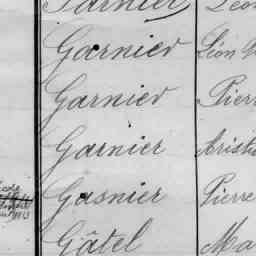 Garnier Léon
Garnier
Garnier Pierr
Garnier Aristi
Gasnier Pierre
Gâtel Ma